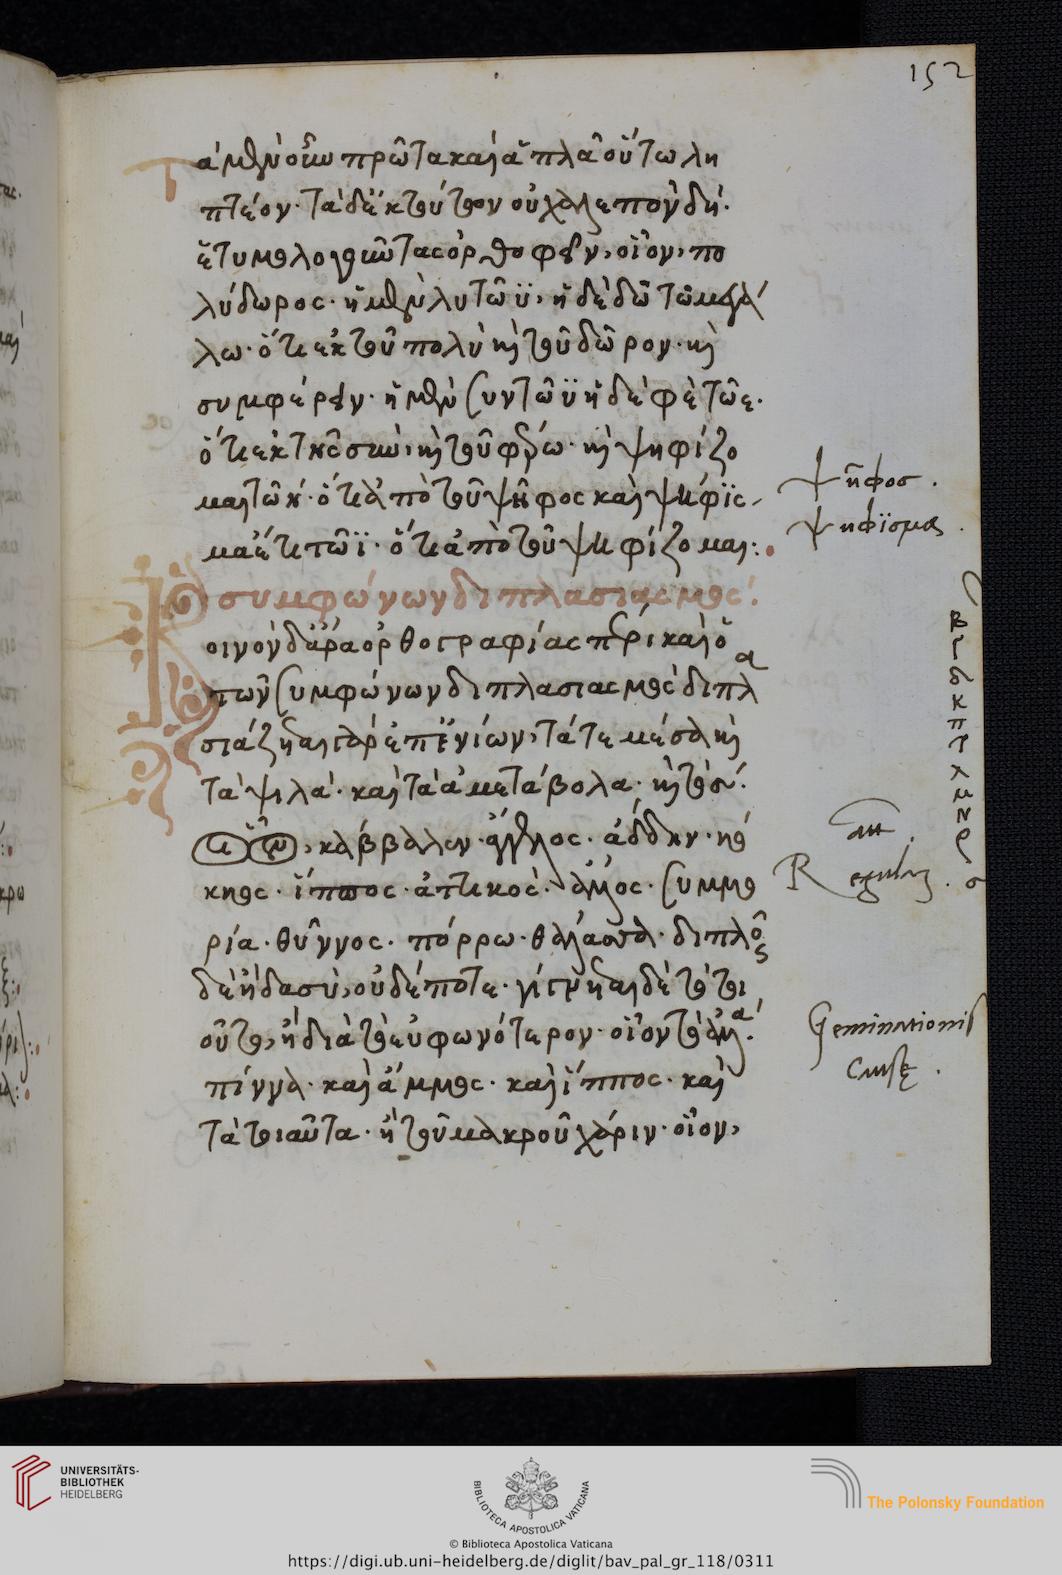 152
Τὰ μὲν οὖν πρῶτα καὶ ἁπλᾶ οὕτω λη
πτέον· τὰ δὲ ἐκ τούτων οὐ χαλεπὸν δή·
ἐτυμολογοῦντας ὀρθογραφεῖν, οἷον, πο
λύδωρος· ἡ μὲν λυ τῶ ϋ, ἡ δὲ δω τῶ μεγά
λω· ὅτι ἐκ τοῦ πολὺ καὶ τοῦ δῶρον· καὶ
συμφέρειν· ἡ μὲν συν τῶ ϋ ἡ δὲ φὲ τῶ ε·
ὅτι ἐκ τῆς σὺν, καὶ τοῦ φέρω· καὶ ψηφίζο
μαι τῶ η· ὅτι ἀπὸ τοῦ ψῆφος καὶ ψήφϊς
μα ἔτι τῶ ϊ· ὅτι ἀπὸ τοῦ ψηφίζομαι:
ψῆφος.
ψηφϊσμα.
συμφώνων διπλασιασμός:
οινον δ' ἄρα ὀρθογραφίας πέρι καὶ ὁ
τῶν συμφώνων διπλασιασμός διπλα
σιάζεται γὰρ ἐπ' ἐνίων, τά τε μέσα καὶ
τὰ ψιλά· καὶ τὰ ἀμετάβολα· καὶ τὸ σ:
β
γ
δ
κ
π
τ
λ
μ
ν
ρ
σ
κάββαλεν· ἄγγελος· ἄδδην· κό
κκος· ἵππος· ἀττικός· ἄλλος· συμμο
ρία· θύννος· πόρρω· θάλασσα· διπλοῦς
δὲ ἢ δασὺ, οὐδέποτε· γίγνεται δὲ τὸ τοι
οῦτο, ἢ διὰ τὸ εὐφωνότερον· οἷον τὸ ἄλλα:
πίννα· καὶ ἄμμος· καὶ ἵππος· καὶ
τὰ τοιαῦτα· ἢ τοῦ μακροῦ χάριν· οἷον,
Regula.
Geminationis
Causę.
UNIVERSITÄTS-
BIBLIOTHEK
HEIDELBERG
BIBLIOTECA APOSTOLICA VATICANA
© Biblioteca Apostolica Vaticana
The Polonsky Foundation
https://digi.ub.uni-heidelberg.de/diglit/bav_pal_gr_118/0311